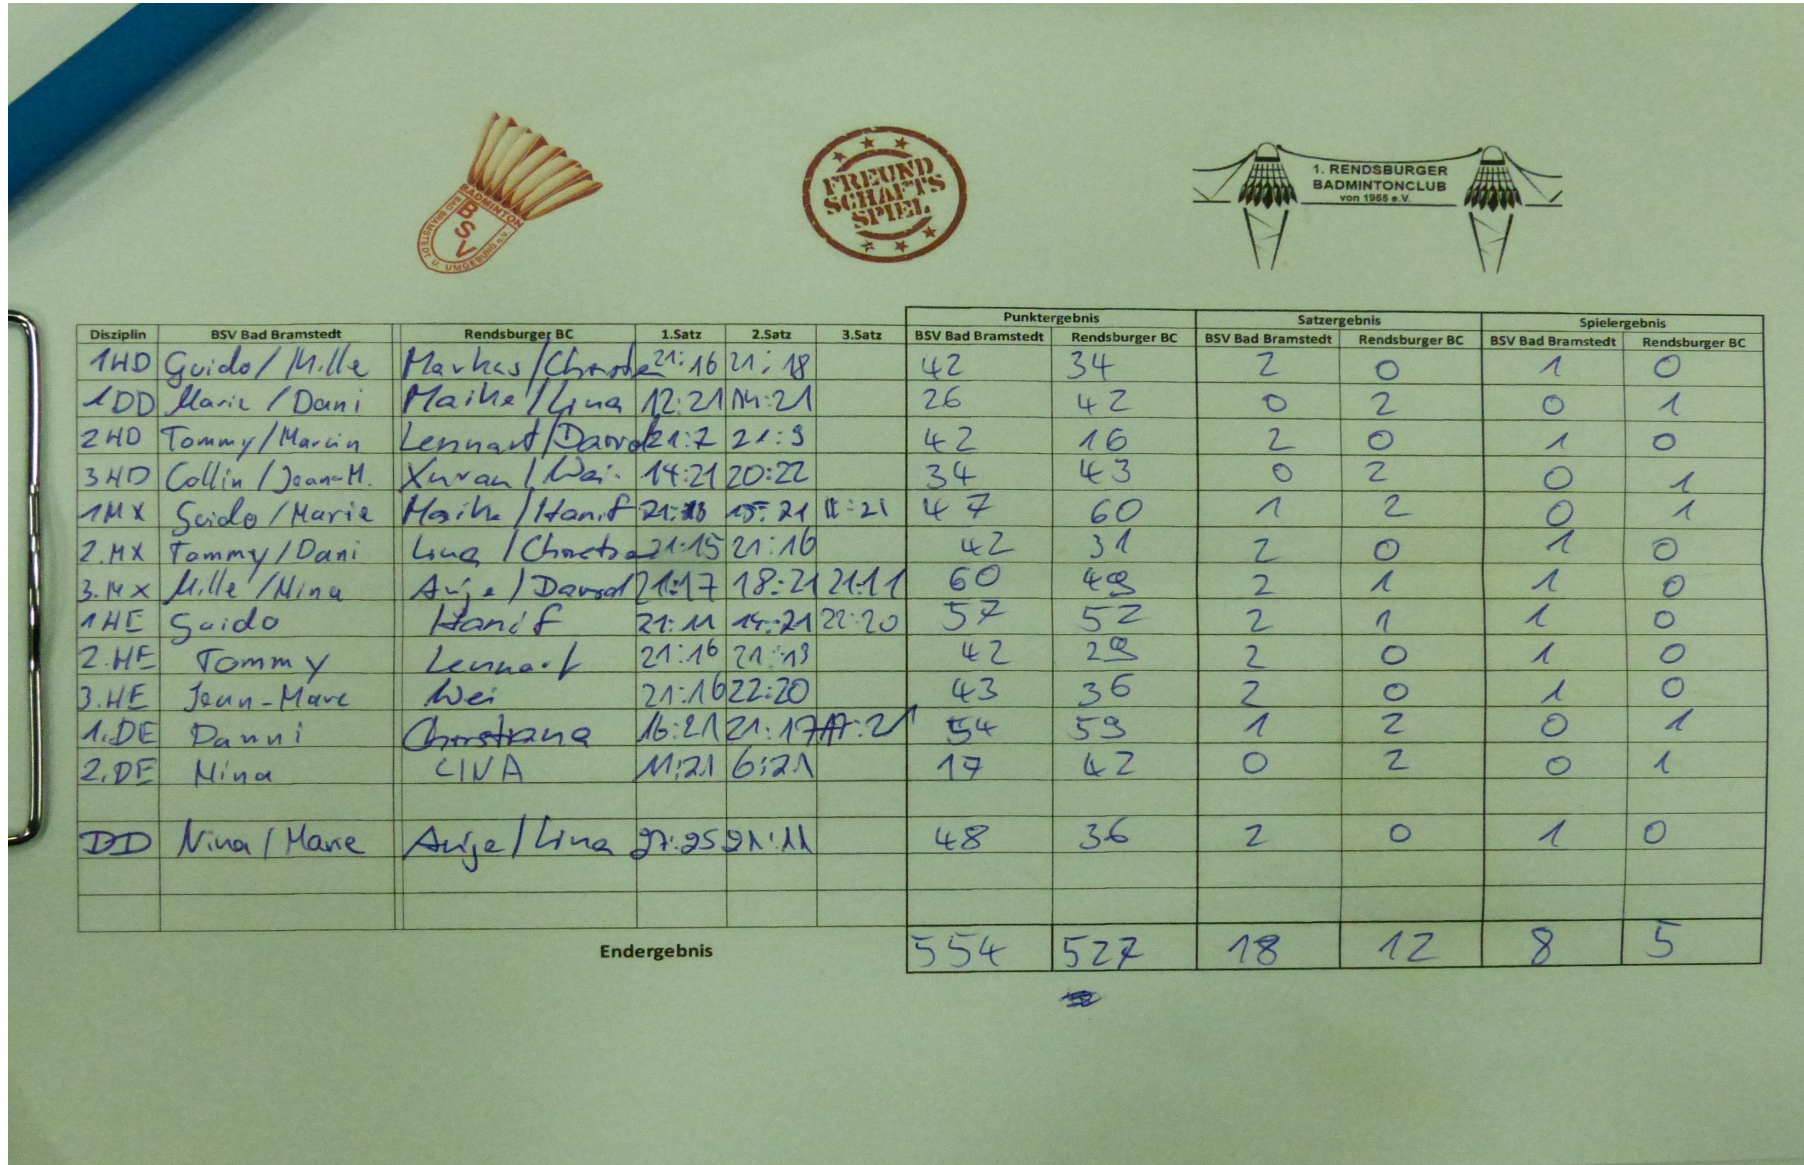 BADMINTON
BSV
BAD BRAMSTEDT U. UMGEBUNG e.V.
FREUND
SCHAFTS
SPIEL
1. RENDSBURGER
BADMINTONCLUB
von 1955 e.V.
Punktergebnis Satzergebnis Spielergebnis
Disziplin BSV Bad Bramstedt Rendsburger BC 1.Satz 2.Satz 3.Satz BSV Bad Bramstedt Rendsburger BC BSV Bad Bramstedt Rendsburger BC BSV Bad Bramstedt Rendsburger BC
1HD Guido / Mille Markus / 21:16 21:18 42 34 2 0 1 0
1DD Marie / Dani Maike / Lina 12:21 14:21 26 42 0 2 0 1
2HD Tommy / Marcin Lennart / David 21:7 21:9 42 16 2 0 1 0
3HD Collin / Jean-M. Xuran / Wei. 14:21 20:22 34 43 0 2 0 1
1MX Guido / Marie Maike / Hanif 21:18 15:21 11:21 47 60 1 2 0 1
2.MX Tommy / Dani Lina / 21:15 21:16 42 31 2 0 1 0
3.MX Mille / Nina Antje / David 21:17 18:21 21:11 60 49 2 1 1 0
1HE Guido Hanif 21:11 14:21 22:20 57 52 2 1 1 0
2.HE Tommy Lennart 21:16 21:13 42 29 2 0 1 0
3.HE Jean-Marc Wei 21:16 22:20 43 36 2 0 1 0
1.DE Danni Christiana 16:21 21:17 17:21 54 59 1 2 0 1
2.DE Nina LINA 11:21 6:21 17 42 0 2 0 1
DD Nina / Marie Antje / Lina 27:25 21:11 48 36 2 0 1 0
Endergebnis 554 527 18 12 8 5